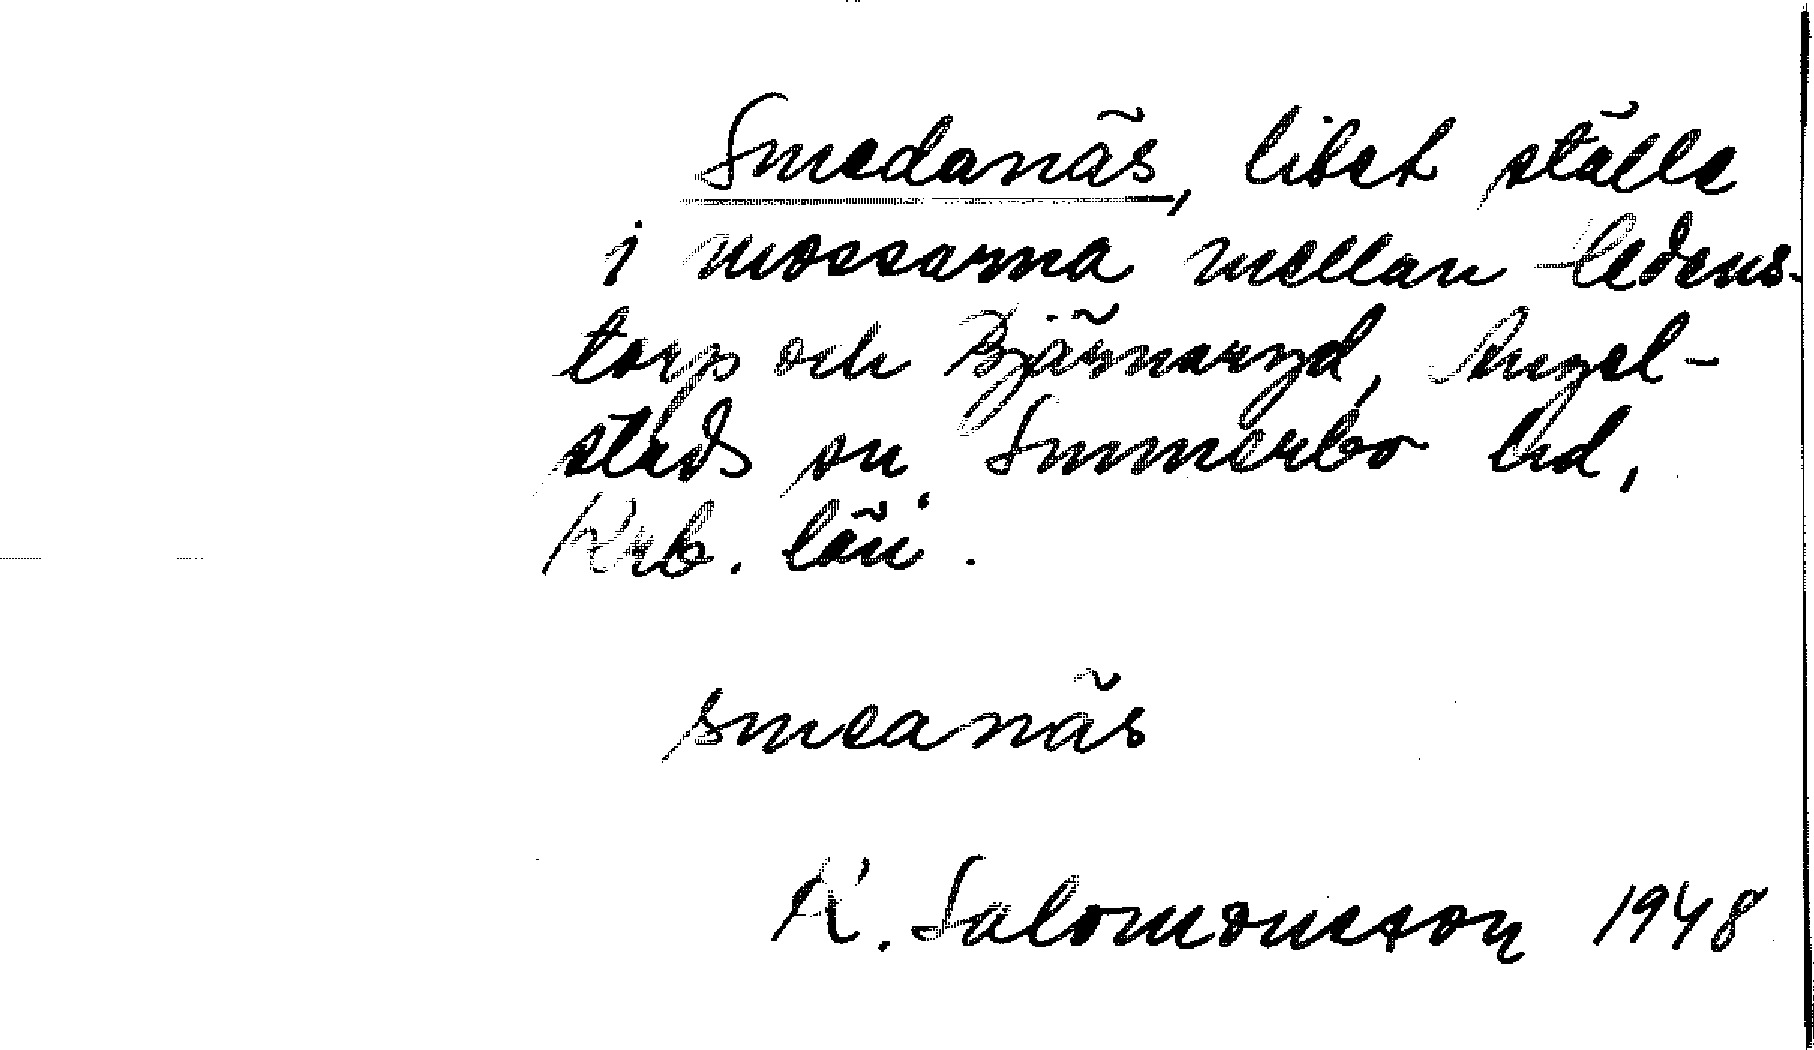 Smedanäs, litet ställe
i mossarna mellan Ledens-
torp och Bjärnaryd, Angel-
stads sn Sunnerbo hd,
Krb. län.
smeanäs
K. Salomonsson 1948